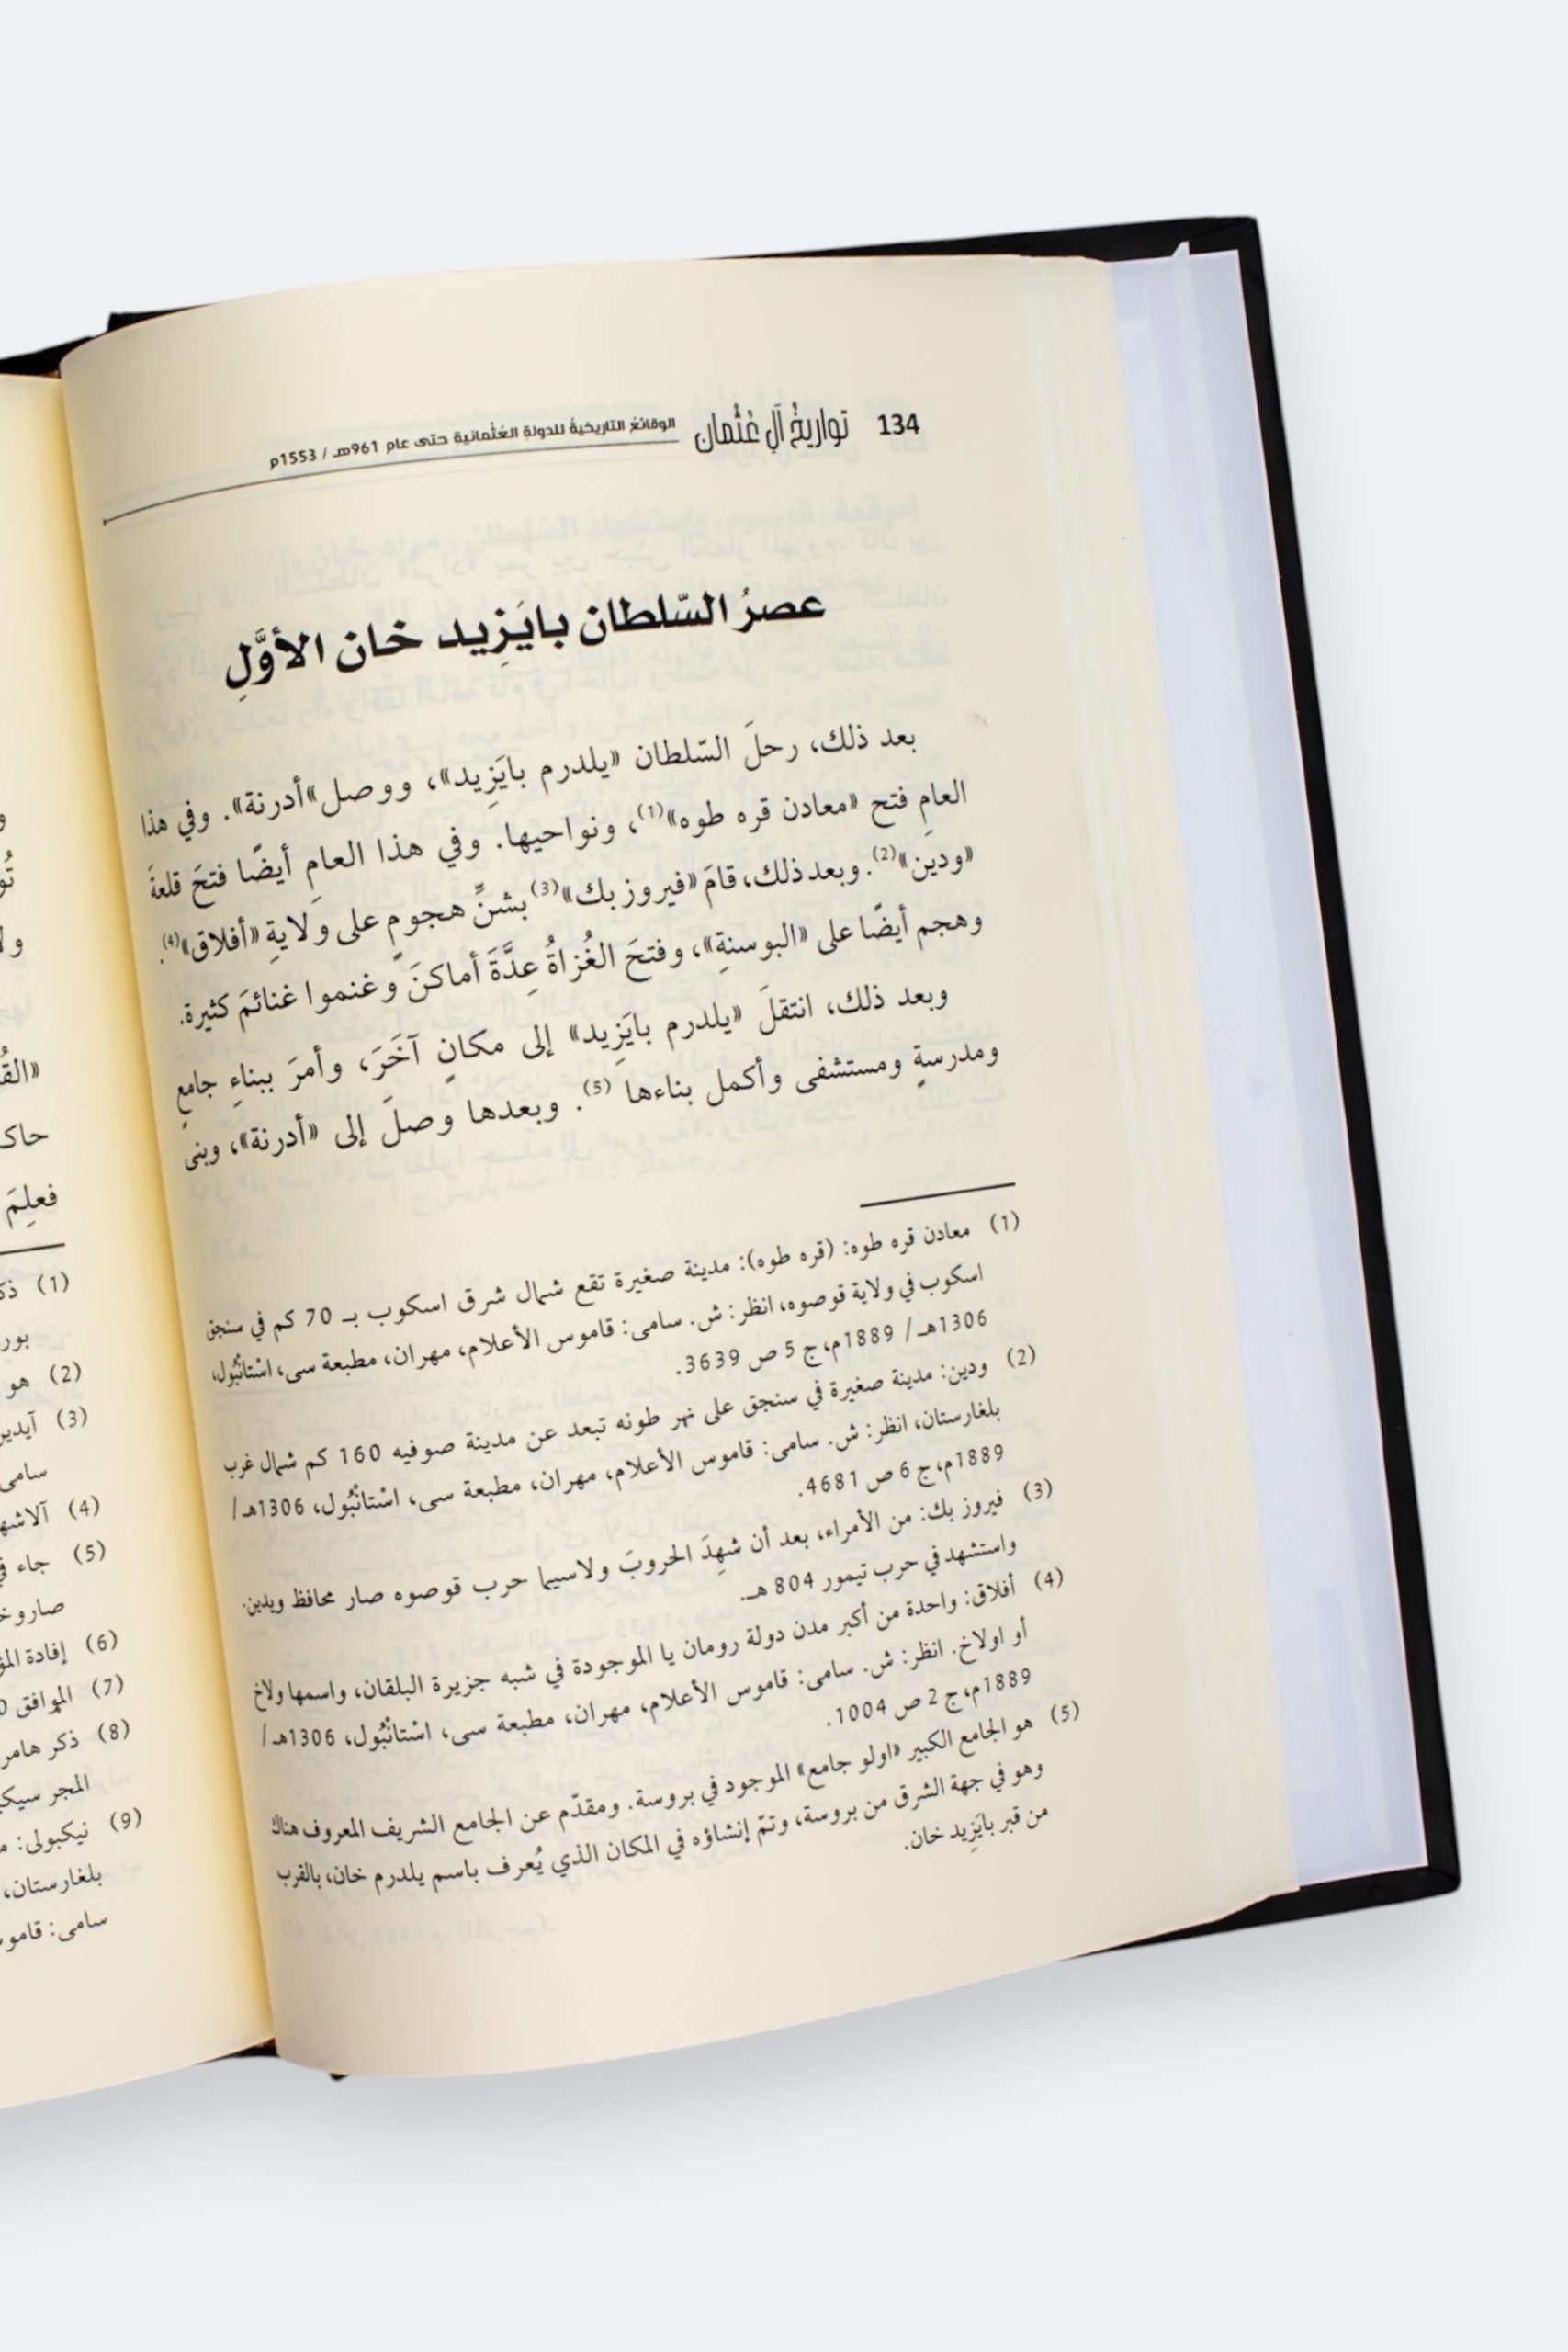 134 تواريخُ آلِ عُثْمان الوقائعُ التاريخيةُ للدولةِ العُثْمانية حتى عام 961هـ / 1553م
عصرُ السّلطان بايَزِيد خان الأوَّلِ
بعد ذلك، رحلَ السّلطان «يلدرم بايَزِيد»، ووصل»أدرنة». وفي هذا
العامِ فتح «معادن قره طوه»(1)، ونواحيها. وفي هذا العامِ أيضًا فتحَ قلعةَ
«ودين»(2). وبعد ذلك، قامَ «فيروز بك»(3) بشنِّ هجومٍ على ولايةِ «أفلاق»(4).
وهجم أيضًا على «البوسنةِ»، وفتحَ الغُزاةُ عِدَّةَ أماكنَ وغنموا غنائمَ كثيرة.
وبعد ذلك، انتقلَ «يلدرم بايَزِيد» إلى مكانٍ آخَرَ، وأمرَ ببناءِ جامعٍ
ومدرسةٍ ومستشفى وأكمل بناءها (5). وبعدها وصلَ إلى «أدرنة»، وبنى
(1) معادن قره طوه: (قره طوه): مدينة صغيرة تقع شمال شرق اسكوب بـ 70 كم في سنجق
اسكوب في ولاية قوصوه، انظر: ش. سامى: قاموس الأعلام، مهران، مطبعة سى، اسْتانْبُول،
1306هـ/ 1889م، ج 5 ص 3639.
(2) ودين: مدينة صغيرة في سنجق على نهر طونه تبعد عن مدينة صوفيه 160 كم شمال غرب
بلغارستان، انظر: ش. سامى: قاموس الأعلام، مهران، مطبعة سى، اسْتانْبُول، 1306هـ/
1889م، ج 6 ص 4681.
(3) فيروز بك: من الأمراء، بعد أن شهِدَ الحروبَ ولاسيما حرب قوصوه صار محافظ ويدين.
واستشهد في حرب تيمور 804 هـ.
(4) أفلاق: واحدة من أكبر مدن دولة رومان يا الموجودة في شبه جزيرة البلقان، واسمها ولاخ
أو اولاخ. انظر: ش. سامى: قاموس الأعلام، مهران، مطبعة سى، اسْتانْبُول، 1306هـ/
1889م، ج 2 ص 1004.
(5) هو الجامع الكبير «اولو جامع» الموجود في بروسة. ومقدّم عن الجامع الشريف المعروف هناك
وهو في جهة الشرق من بروسة، وتمّ إنشاؤه في المكان الذي يُعرف باسم يلدرم خان، بالقرب
من قبر بايَزِيد خان.
«القُ
حاك
فعلِمَ
(1) ذك
بور
(2) هو
(3) آيدين
سامى
(4) آلاشه
(5) جاء في
صاروخ
(6) إفادة المؤ
(7) الموافق 0
(8) ذكر هامر
المجر سيك
(9) نيكبولى: م
بلغارستان،
سامى: قامو